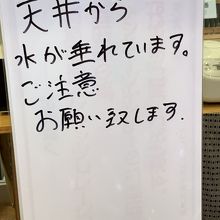 天井から
水が垂れています。
ご注意
お願い致します.